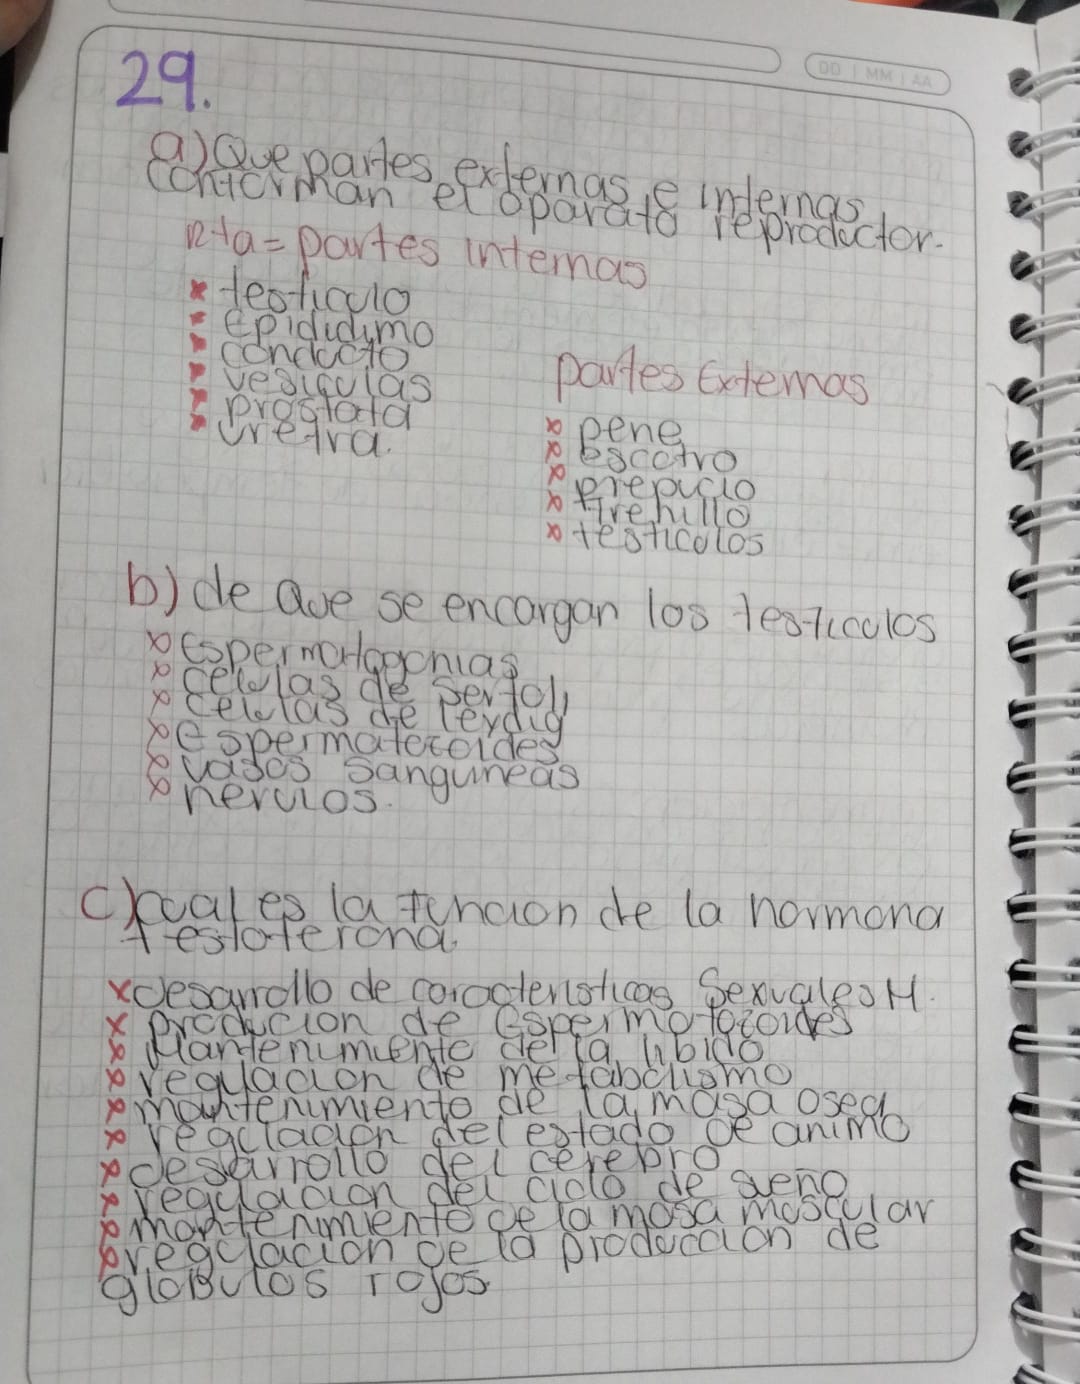 DD | MM | AA
29.
a) Que partes externas e internas
conforman el aparato reproductor.
Rta = partes internas
x testiculo
x epididymo
x conducto
x vesiculas
x prostata
x uretra.
partes Externas
x pene
x escotro
x prepucio
x frenillo
x testiculos
b) de que se encargan los testiculos
x Espermatogonias
x celulas de sertoli
x celulas de leydig
x espermatezoides
x vasos sanguineas
x nervios.
c) cual es la funcion de la hormona
testoterona.
x desarrollo de caracteristicas Sexuales H.
x producion de Espermotozoides
x Mantenimiento de la libido
x regulacion de metabolismo
x mantenimiento de la masa osea
x regulacion del estado de animo
x desarrollo del cerebro
x regulacion del ciclo de sueño
x mantenimiento de la masa muscular
x regulacion de la produccion de
globulos rojos